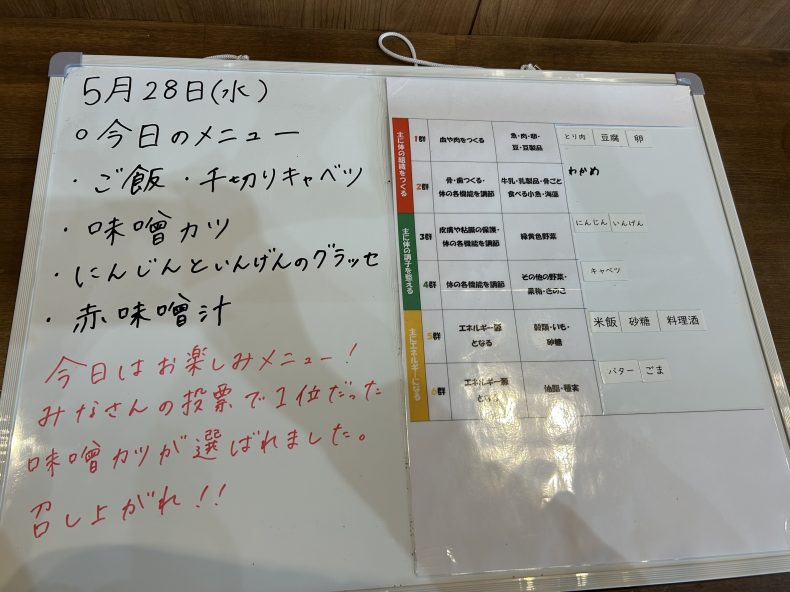 5月28日(水)
○今日のメニュー
・ご飯・千切りキャベツ
・味噌カツ
・にんじんといんげんのグラッセ
・赤味噌汁
今日はお楽しみメニュー!
みなさんの投票で1位だった
味噌カツが選ばれました。
召し上がれ!!
主に体の組織をつくる
1群 血や肉をつくる 魚・肉・卵・豆・豆製品 とり肉 豆腐 卵
2群 骨・歯つくる・体の各機能を調節 牛乳・乳製品・骨ごと食べる小魚・海藻 わかめ
主に体の調子を整える
3群 皮膚や粘膜の保護・体の各機能を調節 緑黄色野菜 にんじん いんげん
4群 体の各機能を調節 その他の野菜・果物・きのこ キャベツ
主にエネルギーになる
5群 エネルギー源となる 穀類・いも・砂糖 米飯 砂糖 料理酒
6群 エネルギー源となる 油脂・種実 バター ごま